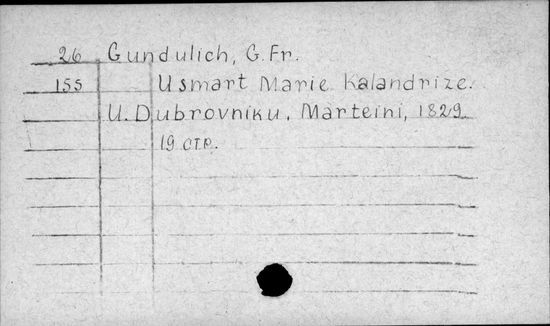 26 Gundulich, G. Fr.
155 Usmart Marie Kalandrize.
U. Dubrovniku, Marteini, 1829
19 стр.